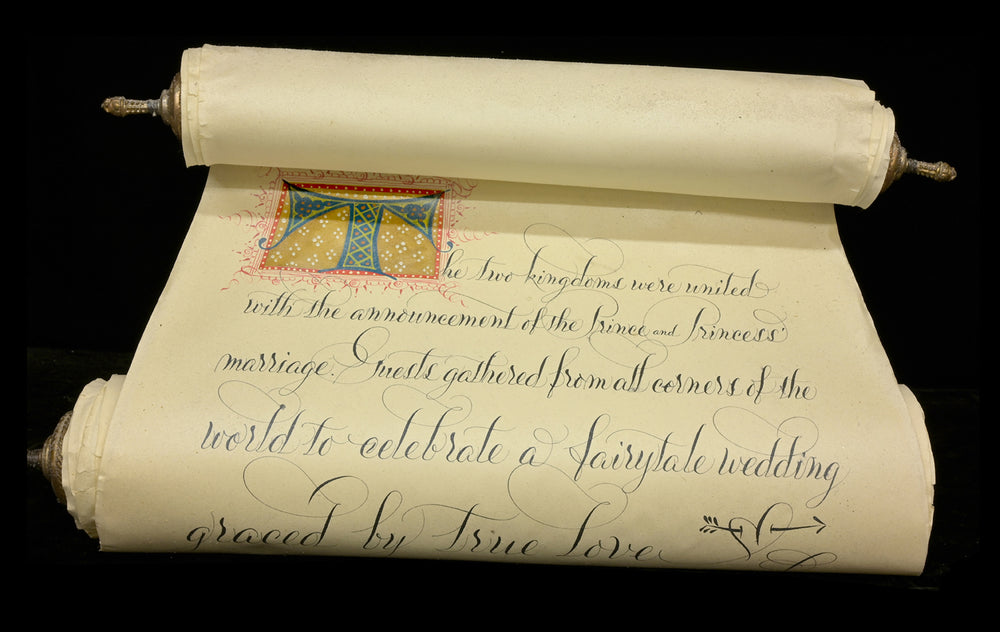 The two kingdoms were united
with the announcement of the Prince and Princess'
marriage. Guests gathered from all corners of the
world to celebrate a fairytale wedding
graced by True Love